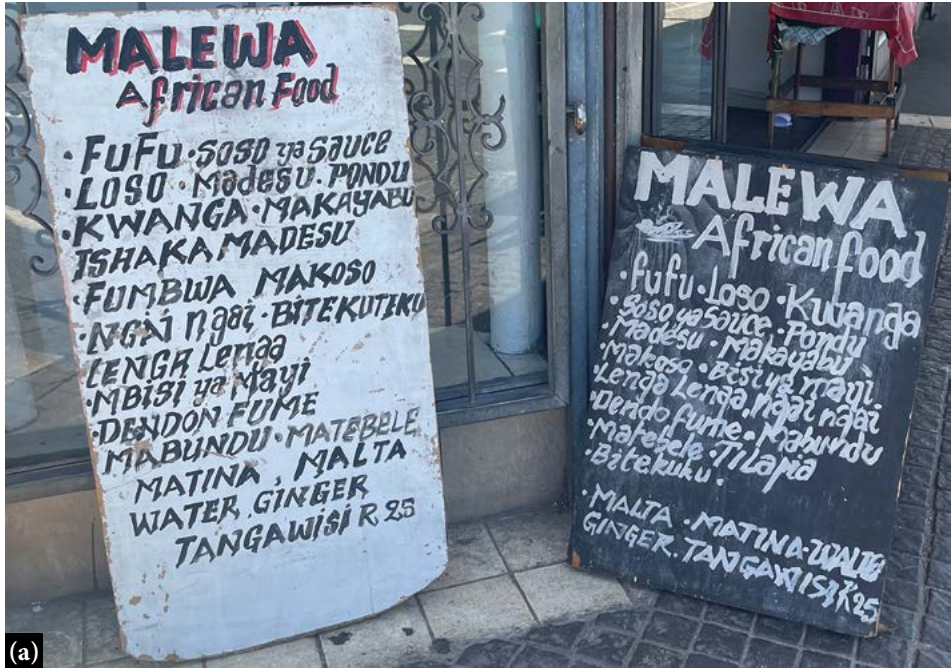 MALEWA
African Food
• FUFU • SOSO ya Sauce
• LOSO • Madesu • PONDU
• KWANGA • MAKAYABU
TSHAKA MADESU
• FUMBWA MAKOSO
• NGAI ngai • BITEKUTEKU
LENGA Lenga
• MBISI ya Mayi
• DENDON FUME
MABUNDU • MATEBELE
MATINA, MALTA
WATER, GINGER
TANGAWISI R 25
MALEWA
African food
• fufu • Loso • Kwanga
• Soso ya Sauce • Pondu
• Madesu • Makayabu
• Makoso • Bisi ya mayi
• Lenga Lenga, ngai ngai
• Dendo fume • Mabundu
• Matebele • TILAPIA
• Bitekuku •
• MALTA • MATINA •
GINGER. TANGAWISI R25
(a)